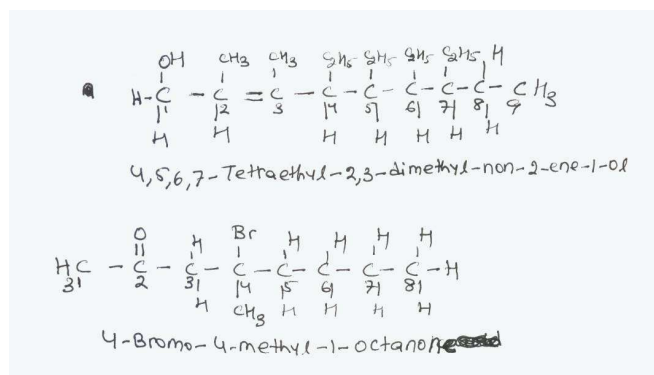 OH CH3 CH3 C2H5 C2H5 C2H5 C2H5 H
H-C - C = C - C - C - C - C - C - CH3
1 2 3 4 5 6 7 8 9
H H H H H H H
4,5,6,7-Tetraethyl-2,3-dimethyl-non-2-ene-1-ol
O H Br H H H H
HC - C - C - C - C - C - C - C - H
31 2 3 4 5 6 7 8
H CH3 H H H H
4-Bromo-4-methyl-1-octanone